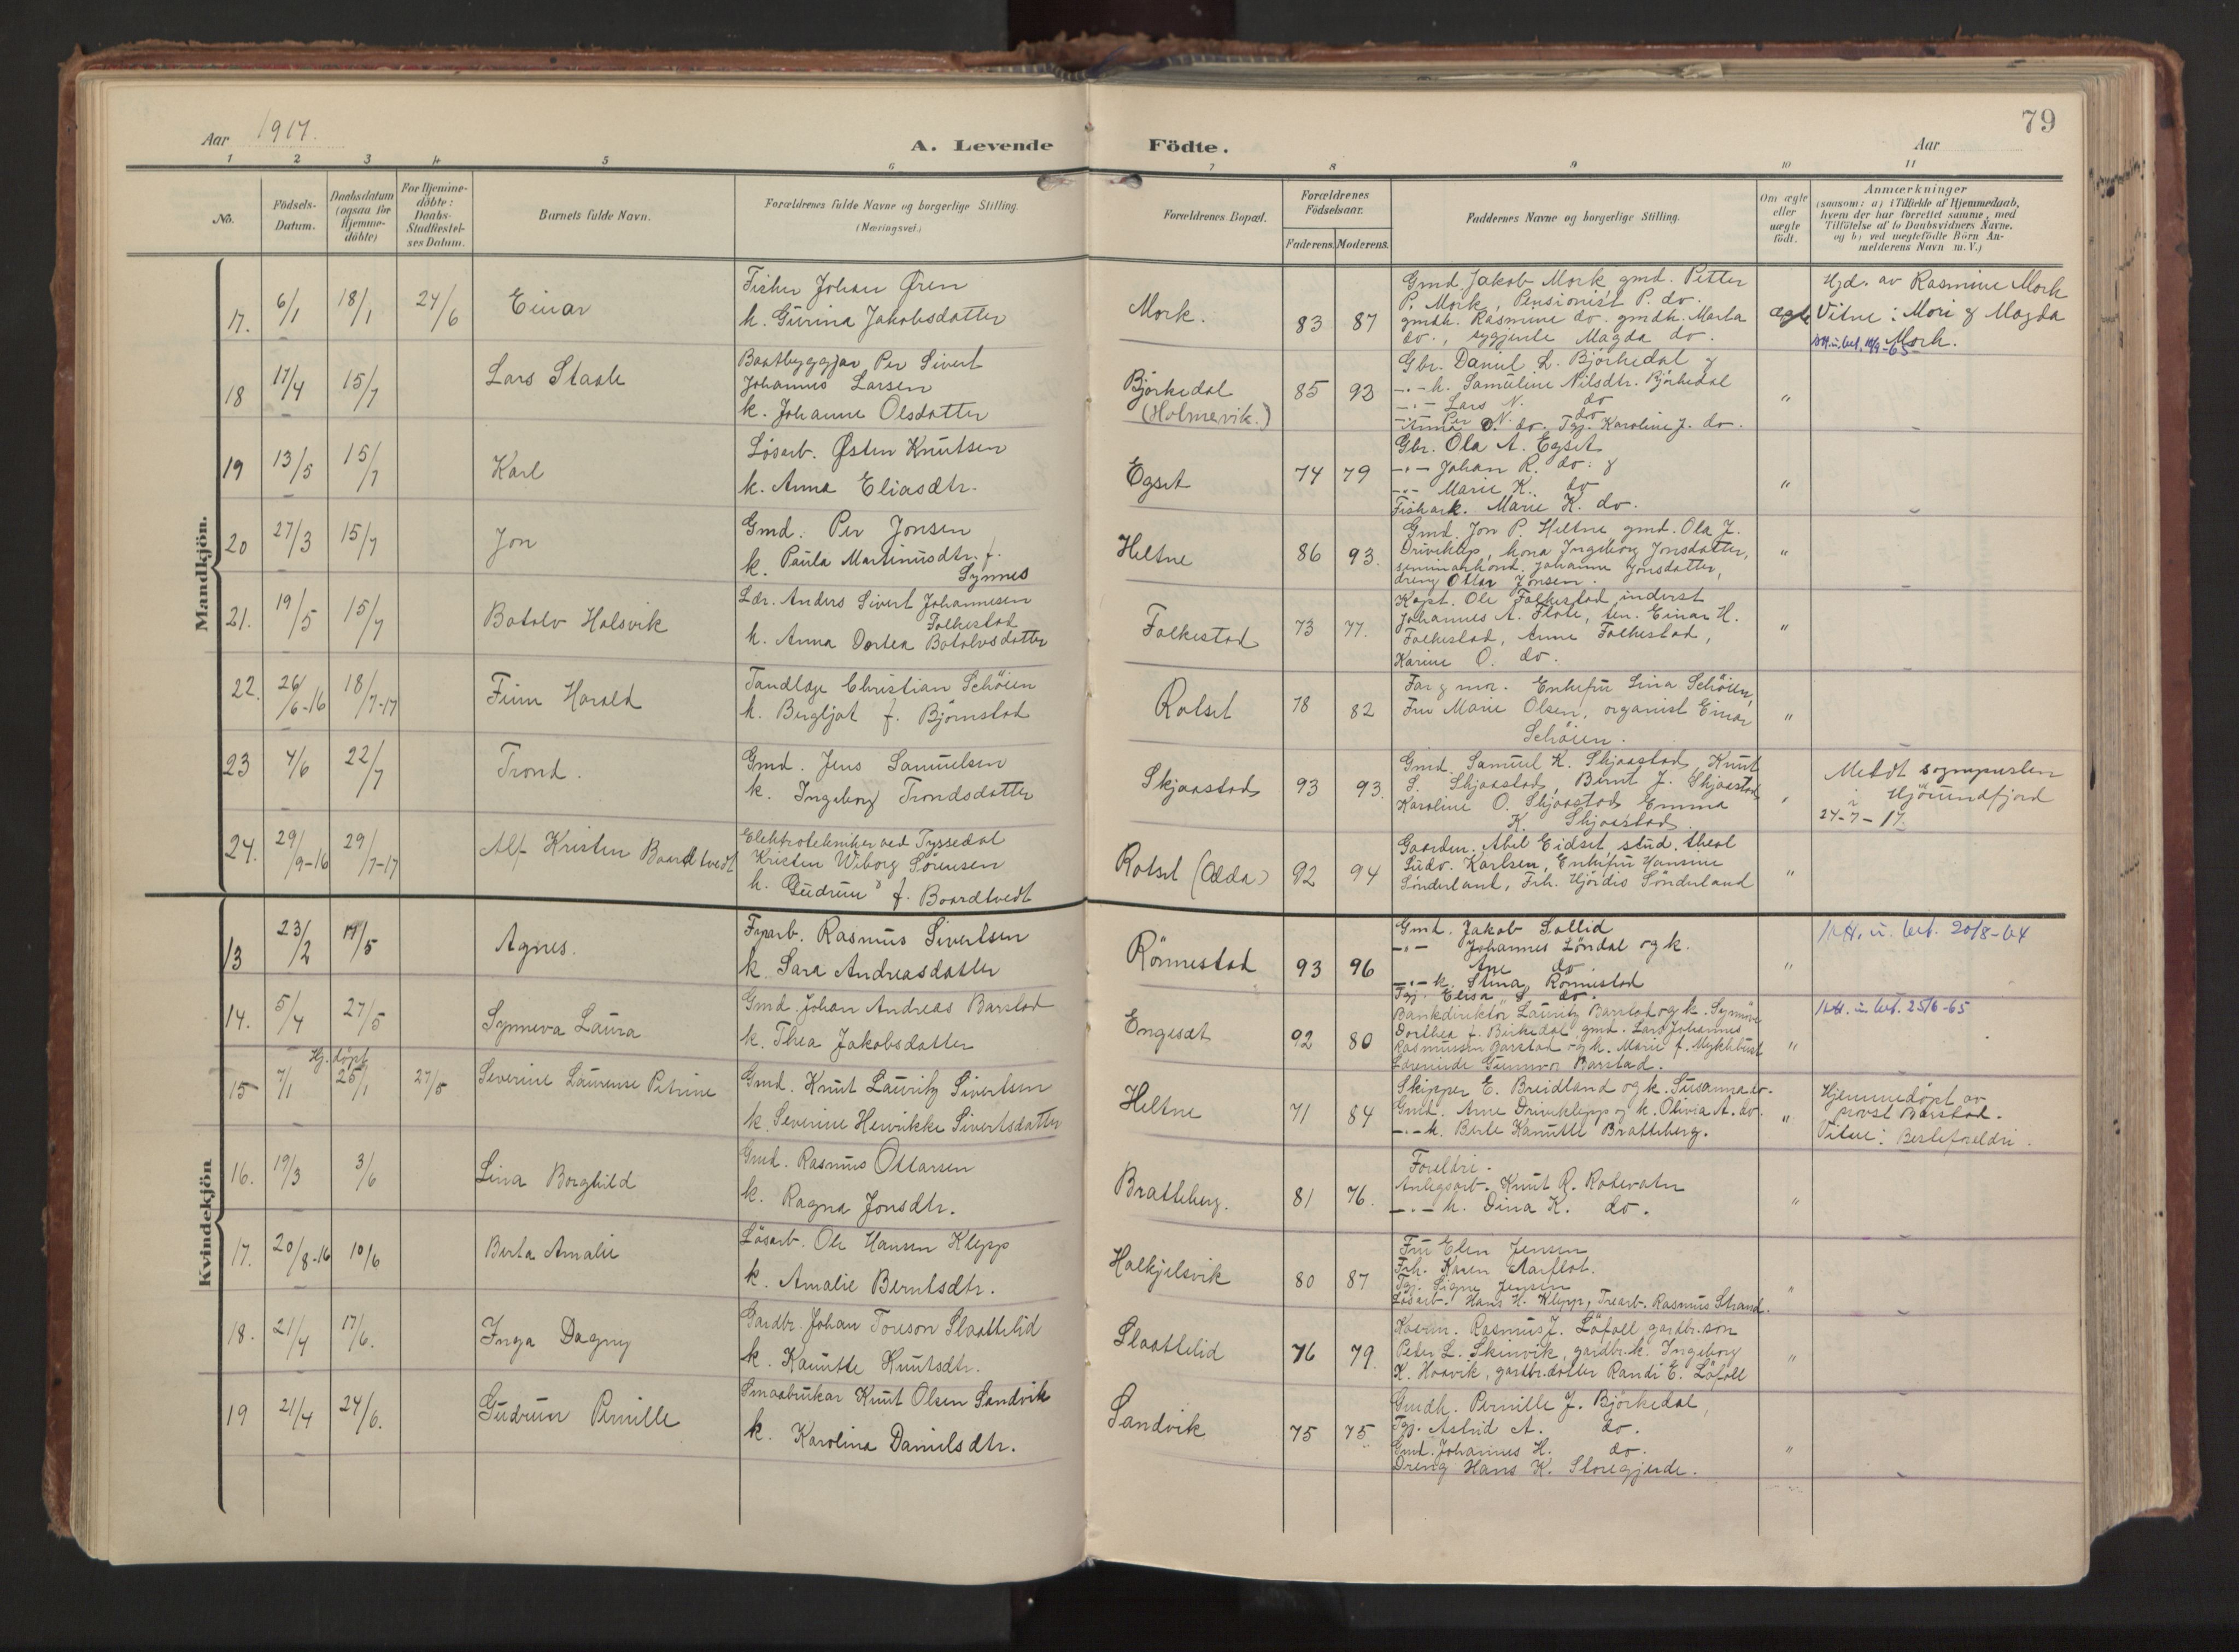 79
Aar 1917.
A. Levende Födte.
Aar
1 2 3 4 5 6 7 8 9 10 11
No.
Födsels-Datum.
Daabsdatum (ogsaa for Hjemme-döbte)
For Hjemme-döbte: Daabs-Stadfæstel-ses Datum.
Barnets fulde Navn.
Forældrenes fulde Navne og borgerlige Stilling. (Næringsvei.)
Forældrenes Bopæl.
Forældrenes Födselsaar.
Faderens. Moderens.
Faddernes Navne og borgerlige Stilling.
Om ægte eller uægte födt.
Anmærkninger
(saasom: a) i Tilfælde af Hjemmedaab, hvem der har forrettet samme, med Tilföielse af to Daabsvidners Navne, og b) ved uægtefödte Börn An-melderens Navn m. V.)
Mandkjön.
17. 6/1 18/1 24/6 Einar
Fisker Johan Øren
k. Gurina Jakobsdatter
Mork. 83 87
Gmd. Jakob Mork, gmd. Petter
P. Mork, Pensionist P. do.
gmdk. Rasmine do. gmdk. Marta
do., Magda do.
ægte
Hjd. av Rasmine Mork
Vitne: Mori & Magda
Mork.
18 17/4 15/7 Lars Staale
Baatbyggjar Per Sivert
Johannes Larsen
k. Johanne Olsdatter
Björkedal
(Holmevik.) 85 93
Gbr. Daniel L. Björkedal &
-"- k. Samuline Nilsdtr. Björkedal
-"- Lars N. do
Per N. do
Anna O. do. Tgj. Karoline J. do.
"
19 13/5 15/7 Karl
Lösarb. Østen Knutsen
k. Anna Eliasdtr.
Egset 74 79
Gbr. Ola A. Egset
-"- Johan R. do: &
-"- Marie K. do
Fiskark. Marie K. do.
"
20 27/3 15/7 Jon
Gmd. Per Jonsen
k. Paula Martinusdtr. f.
Synnes
Heltne 86 93.
Gmd. Jon P. Heltne gmd. Ola J.
Driveklep, kona Ingeborg Jonsdatter,
Johanne Jonsdatter,
dreng Ottar Jonsen.
"
21. 19/5 15/7 Botolv Halsvik
Lær. Anders Sivert Johannesen
Folkestad
k. Anna Dortea Botolvsdatter
Folkestad 73 77.
Kapt. Ole Folkestad, inderst
Johannes A. Flote, Einar H.
Folkestad, Anne Folkestad,
Karine O. do.
"
22. 26/6-16 18/7-17 Finn Harald
Tandlæge Christian Schöien
k. Bergljot f. Björnstad
Rotset 78 82
Far & mor. Enkefru Lina Schöien,
Fru Marie Olsen, organist Einar
Schöien.
"
23 4/6 22/7 Trond.
Gmd. Jens Samuelsen
k. Ingeborg Trondsdatter
Skjaastad 93 93.
Gmd. Samuel K. Skjaastad, Knut
S. Skjaastad, Bernt J. Skjaastad
Karoline O. Skjaastad Emma
K. Skjaastad.
"
Meldt sognepresten
i Hjörundfjord
24-7-17.
24. 29/9-16 29/7-17 Alf Kristen Baardtvedt
Elektrotekniker ved Tyssedal
Kristen Wiborg Sörensen
k. Gudrun f. Baardtvedt
Rotset (Odda) 92 94
Gaardm. Abel Eidset, stud. theol
Ludv. Karlsen, Enkefru Hansine
Sönderland, Frk. Hjördis Sönderland
"
Kvindekjön.
13 23/2 17/5 Agnes.
Fabrarb. Rasmus Sivertsen
k. Sara Andreasdatter
Rönnestad 93 96
Gmd. Jakob Sollid
-"- Johannes Löndal og k.
Ane do
-"- k. Stina Rönnestad
Tgj. Elisa S do.
"
20/8-64
14. 5/4 27/5 Synneva Laura
Gmd. Johan Andreas Barstad
k. Thea Jakobsdatter
Engeset 92 80
Bankdirektör Lauritz Barstad og k. Synnöve
Dorthea f. Birkedal, gmd. Lars Johannes
Rasmussen Barstad og k. Marie f. Myklebust
Lærerinde Gunnvor Barstad.
"
25/6-65
Hj. döpt
15 7/1 25/1 27/5 Severine Laurense Petrine
Gmd. Knut Lauritz Sivertsen
k. Severine Henrikke Sivertsdatter
Heltne 71 84
Skipper E. Breidland og k. Susanna do.
Gmd. Arne Driveklepp og k. Olivia A. do.
-"- k. Berte Kanutte Bratteberg.
"
Hjemmedöpt av
provst Barstad.
Vitne: Besteforeldri.
16. 19/3 3/6 Lina Borghild
Gmd. Rasmus Ottarsen
k. Ragna Jonsdtr.
Bratteberg. 81 76.
Foreldri.
Anlegsarb. Knut R. Rotevatn
-"- k. Dina K. do.
"
17. 20/8-16 10/6 Berta Amalie
Lösarb. Ole Hansen Klepp
k. Amalie Berntsdtr.
Halkjelsvik 80 87
Fru Elen Jensen
Frk. Karen Aarflot.
Tgj. Signe Jensen
Lösarb. Hans H. Klepp, Trearb. Rasmus Strand.
"
18. 21/4 17/6. Inga Dagny
Gardbr. Johan Toreson Slaattelid
k. Kanutte Knutsdtr.
Slaattelid 76 79.
Rasmus J. Löfoll gardbr.son
Peter L. Skinvik, gardbr.k. Ingeborg
K. Hovik, gardbr.dotter Randi E. Löfoll
"
19 21/4 24/6. Gudrun Pernille
Smaabrukar Knut Olsen Sandvik
k. Karolina Danielsdtr.
Sandvik 75 75
Gmdk. Pernille J. Björkedal,
Tgj. Astrid A. do.
Gmd. Johannes H. do.
Dreng Hans K. Storegjerde.
"